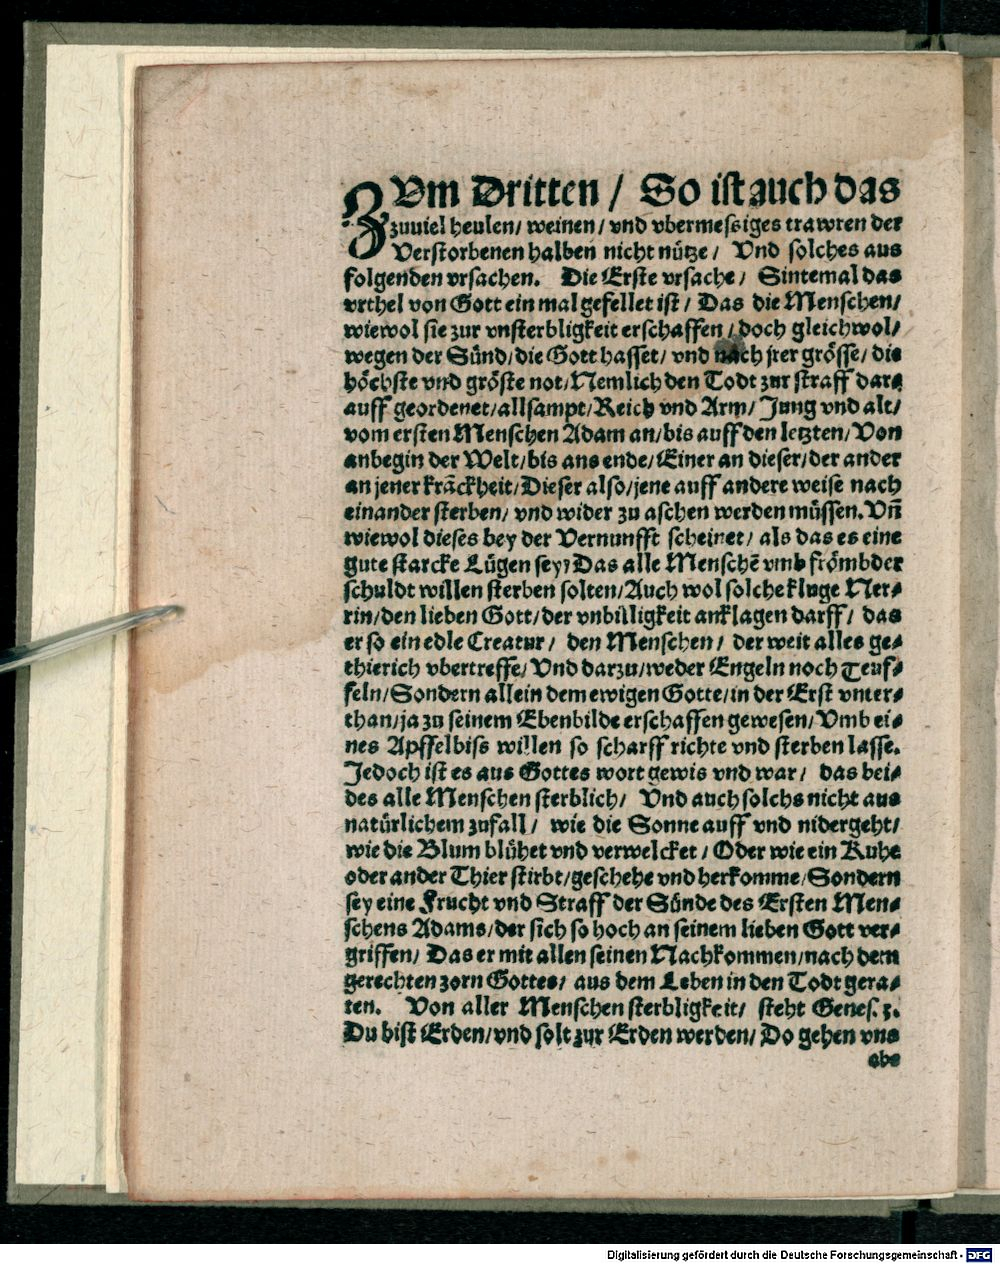 ZVm Dritten / So ist auch das
zuuiel heulen / weinen / vnd vbermessiges trawren der
Verstorbenen halben nicht nütze / Vnd solches aus
folgenden vrsachen. Die Erste vrsache / Sintemal das
vrthel von Gott ein mal gefellet ist / Das die Menschen /
wiewol sie zur vnsterbligkeit erschaffen / doch gleichwol /
wegen der Sünd / die Gott hasset / vnd nach jrer grösse / die
höchste vnd gröste not / Nemlich den Todt zur straff dar⸗
auff geordenet / allsampt / Reich vnd Arm / Jung vnd alt /
vom ersten Menschen Adam an / bis auff den letzten / Von
anbegin der Welt / bis ans ende / Einer an dieser / der ander
an jener krāckheit / Dieser also / jene auff andere weise nach
einander sterben / vnd wider zu aschen werden müssen. Vn̄
wiewol dieses bey der Vernunfft scheinet / als das es eine
gute starcke Lügen sey? Das alle Menschē vmb frömbder
schuldt willen sterben solten / Auch wol solche kluge Ner⸗
rin / den lieben Gott / der vnbilligkeit anklagen darff / das
er so ein edle Creatur / den Menschen / der weit alles ge⸗
thierich vbertreffe / Vnd darzu / weder Engeln noch Teuf⸗
feln / Sondern allein dem ewigen Gotte / in der Erst vnter⸗
than / ja zu seinem Ebenbilde erschaffen gewesen / Vmb ei⸗
nes Apffelbiss willen so scharff richte vnd sterben lasse.
Jedoch ist es aus Gottes wort gewis vnd war / das bei⸗
des alle Menschen sterblich / Vnd auch solchs nicht aus
natürlichem zufall / wie die Sonne auff vnd nidergeht /
wie die Blum blühet vnd verwelcket / Oder wie ein Kuhe
oder ander Thier stirbt / geschehe vnd herkomme / Sondern
sey eine Frucht vnd Straff der Sünde des Ersten Men⸗
schens Adams / der sich so hoch an seinem lieben Gott ver⸗
griffen / Das er mit allen seinen Nachkommen / nach dem
gerechten zorn Gottes / aus dem Leben in den Todt gera⸗
ten. Von aller Menschen sterbligkeit / steht Genes. 3.
Du bist Erden / vnd solt zur Erden werden / Do gehen vns
abe
Digitalisierung gefördert durch die Deutsche Forschungsgemeinschaft - DFG